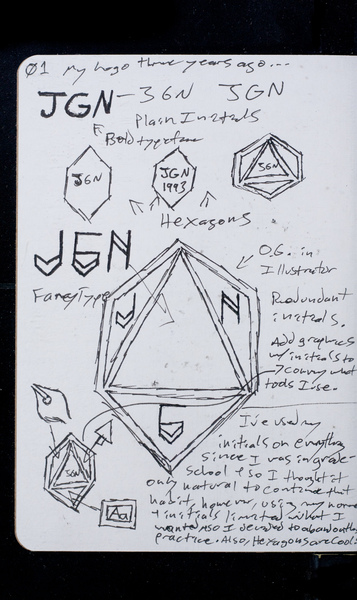 01 My logo three years ago...
JGN - JGN JGN
Plain Initials
Bold typeface
JGN
JGN
1993
JGN
Hexagons
JGN
Fancy Type
O.G. in
Illustrator
J N
Redundant
initials.
Add graphics
w/ initials to
convey what
tools I use.
G
JGN
Aa
I've used my
initials on everything
since I was in grade-
school so I thought it
only natural to continue that
habit, however, using my name
+ initials limited what I
wanted so I decided to abandon the
practice. Also, Hexagons are Cool.